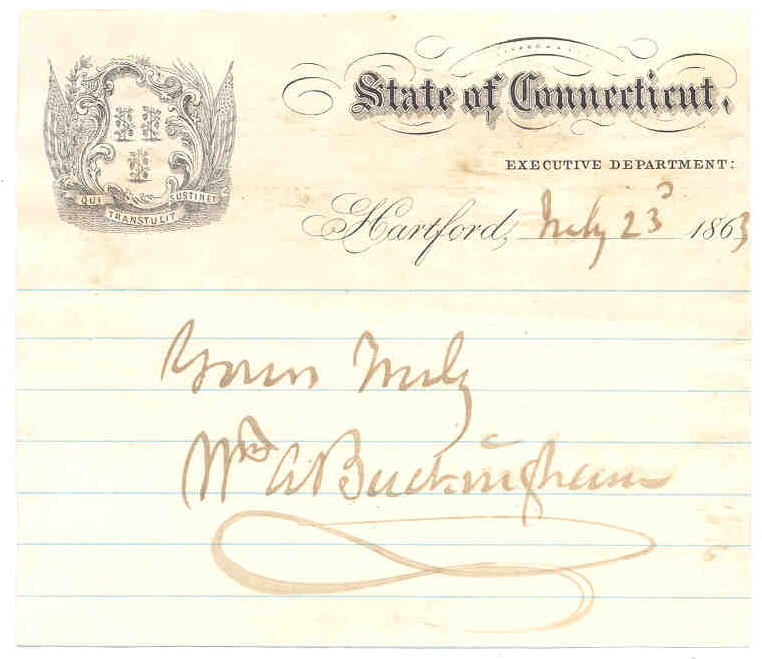 State of Connecticut,
EXECUTIVE DEPARTMENT:
QUI TRANSTULIT SUSTINET
Hartford, July 23d 1863
Yours Truly
Wm A Buckingham